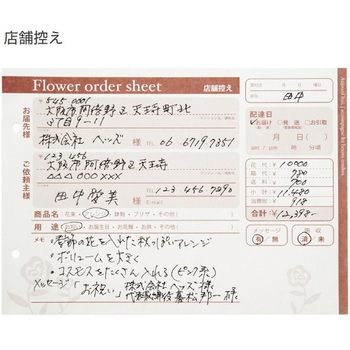 店舗控え
Flower order sheet
店舗控え
お届先様
〒545 0001
大阪市阿倍野区天王寺町北
3丁目9-11
株式会社ヘッズ
TEL 06 6719 7351
ご依頼主様
〒123 456
大阪市阿倍野区天王寺
△△△0×××
田中愛美
TEL 123 456 7890
E-mail
商品名( 花束 ・ アレンジ ・ 鉢物 ・ プリザ ・ その他 )
用途( お祝い ・ お誕生日 ・ お見舞 ・ お供 ・ その他 )
メモ ・季節の花を入れた秋っぽいアレンジ
・ボリュームを大きく
・コスモスをたくさん入れる(ピンク系)
メッセージ「お祝い」株式会社ヘッズ様
代表取締役
様
受付日
年 月 日( )
田中
配達日
お届け 発送 お引取
月 日( )
am / pm 時 分頃
花代 10000
送料
11.480
消費税 918
合計 ¥ 12,398-
メッセージ
有 ・ 無
領収
済 ・ 未